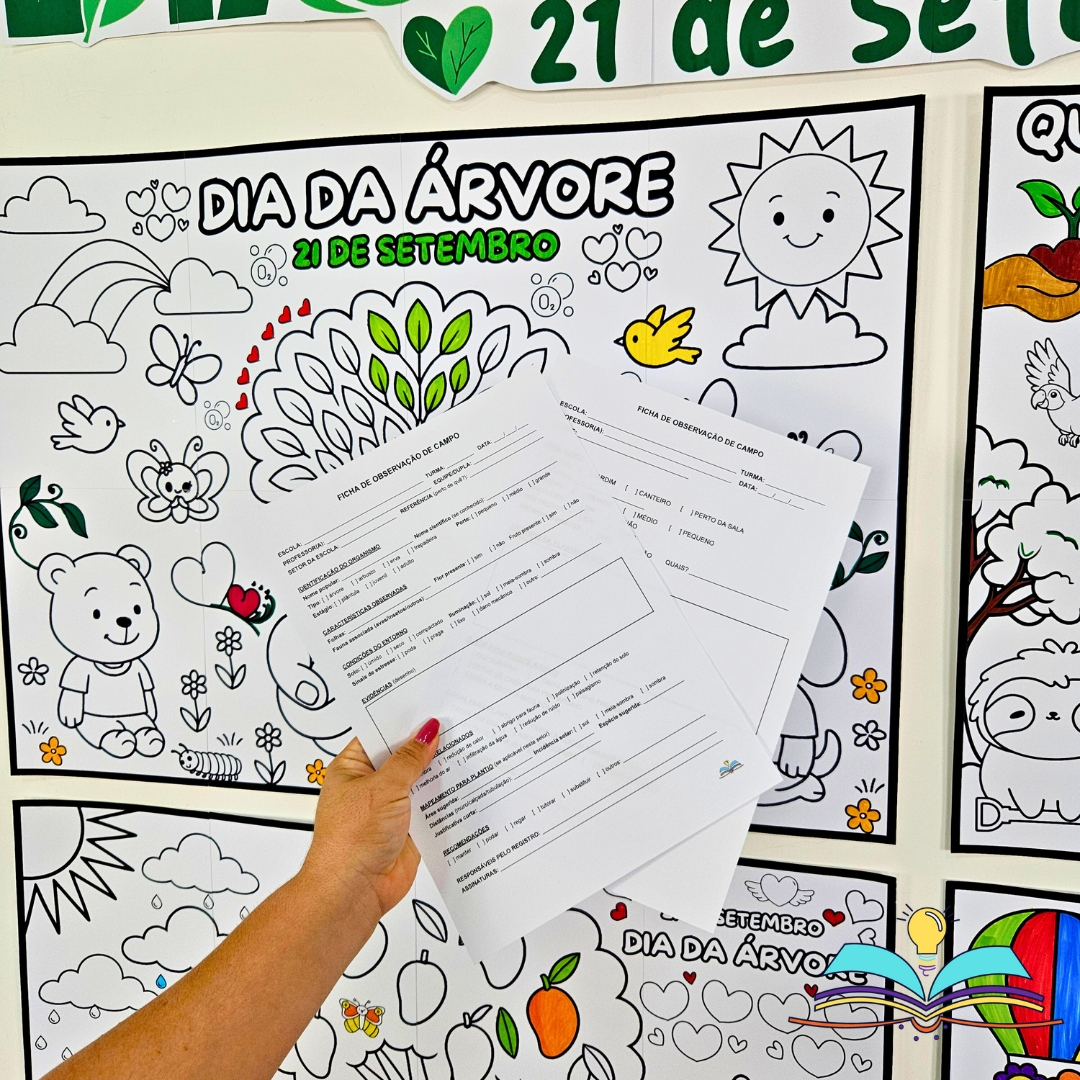 21 de Set
DIA DA ÁRVORE
21 DE SETEMBRO
O2
O2
O2
QU
FICHA DE OBSERVAÇÃO DE CAMPO
ESCOLA:
TURMA: DATA: __/__/__
PROFESSOR(A): EQUIPE/DUPLA:
SETOR DA ESCOLA: REFERÊNCIA (perto de quê?):
IDENTIFICAÇÃO DO ORGANISMO
Nome popular: Nome científico (se conhecido):
Tipo: [ ] árvore [ ] arbusto [ ] erva [ ] trepadeira Porte: [ ] pequeno [ ] médio [ ] grande
Estágio: [ ] plântula [ ] juvenil [ ] adulto
CARACTERÍSTICAS OBSERVADAS
Folhas: Flor presente: [ ] sim [ ] não Fruto presente: [ ] sim [ ] não
Fauna associada (aves/insetos/outros):
CONDIÇÕES DO ENTORNO
Solo: [ ] úmido [ ] seco [ ] compactado Iluminação: [ ] sol [ ] meia-sombra [ ] sombra
Sinais de estresse: [ ] poda [ ] praga [ ] lixo [ ] dano mecânico [ ] outro:
EVIDÊNCIAS (desenho)
RELACIONADOS
[ ] redução de calor [ ] abrigo para fauna [ ] polinização [ ] retenção do solo
[ ] melhoria do ar [ ] infiltração da água [ ] redução de ruído [ ] paisagismo
MAPEAMENTO PARA PLANTIO (se aplicável neste setor)
Área sugerida: Incidência solar: [ ] sol [ ] meia-sombra [ ] sombra
Distâncias (muro/calçada/tubulação): Espécie sugerida:
Justificativa curta:
RECOMENDAÇÕES
[ ] manter [ ] podar [ ] regar [ ] tutorar [ ] substituir [ ] outros:
RESPONSÁVEIS PELO REGISTRO:
ASSINATURAS:
FICHA DE OBSERVAÇÃO DE CAMPO
ESCOLA:
PROFESSOR(A): TURMA:
DATA: __/__/__
[ ] CANTEIRO [ ] PERTO DA SALA
[ ] MÉDIO [ ] PEQUENO
QUAIS?
SETEMBRO
DIA DA ÁRVORE